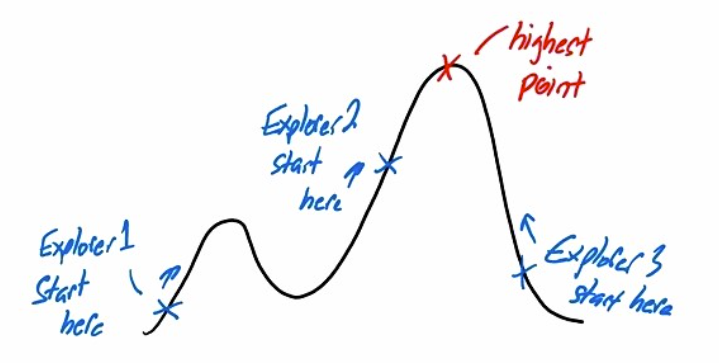 highest
point
Explorer 2
start
here
Explorer 1
Start
here
Explorer 3
start here